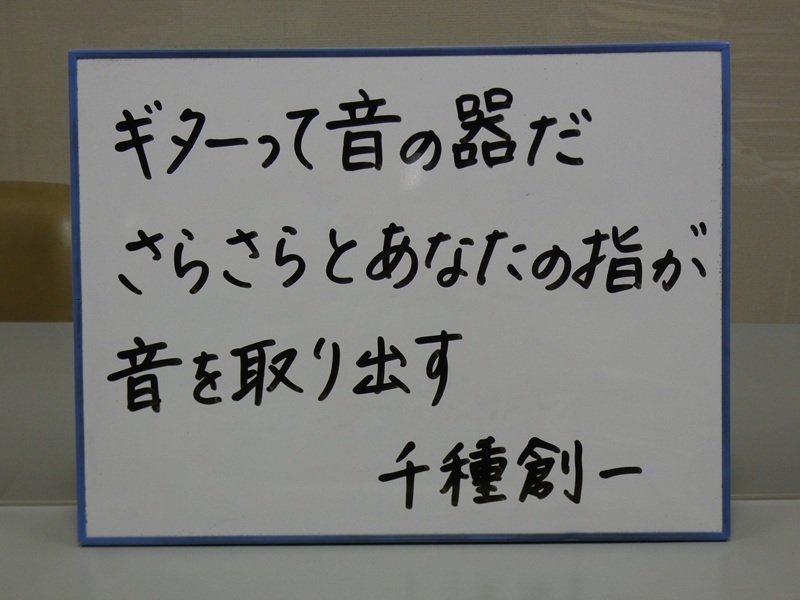 ギターって音の器だ
さらさらとあなたの指が
音を取り出す
千種創一